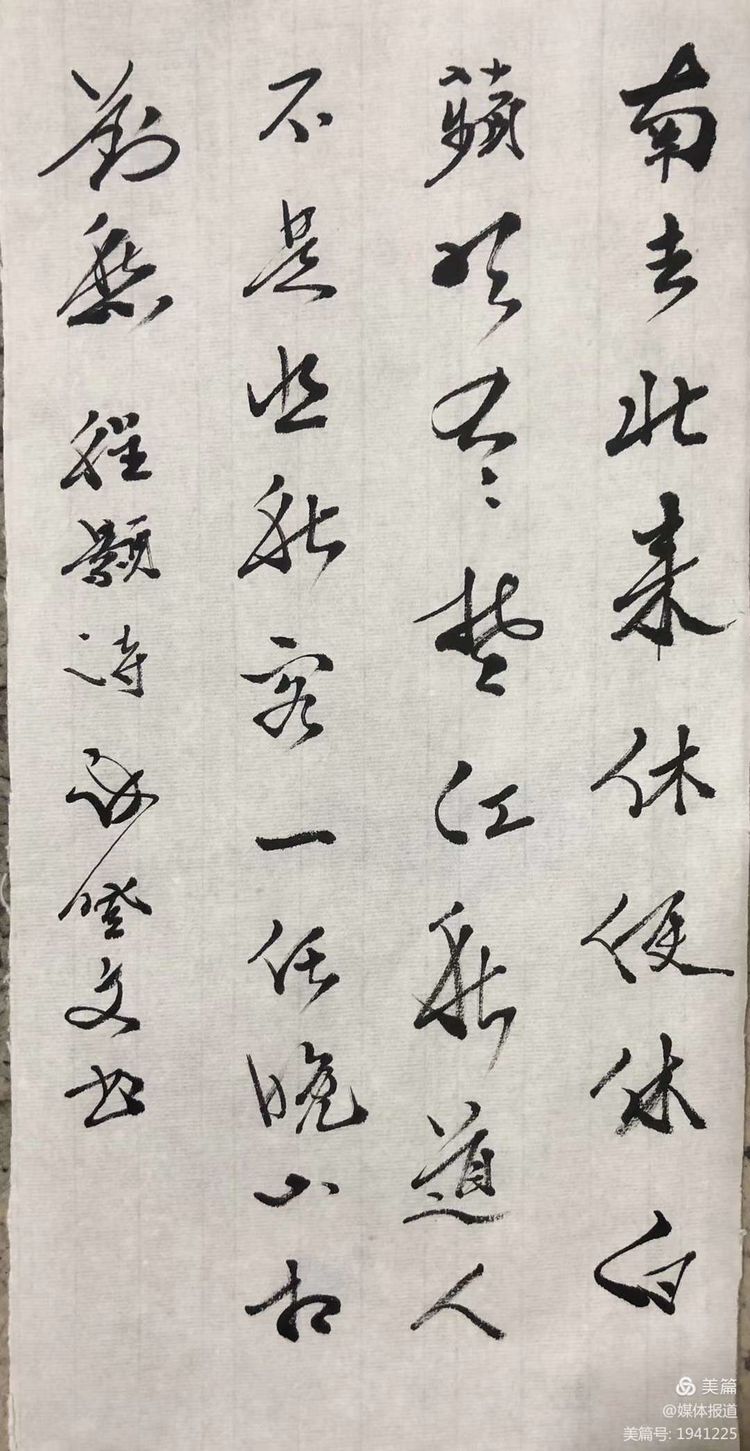 南去北来休便休白
蘋吹尽楚江秋道人
不是悲秋客一任晚山相
對愁 程颢诗 文书
美篇
@媒体报道
美篇号: 1941225